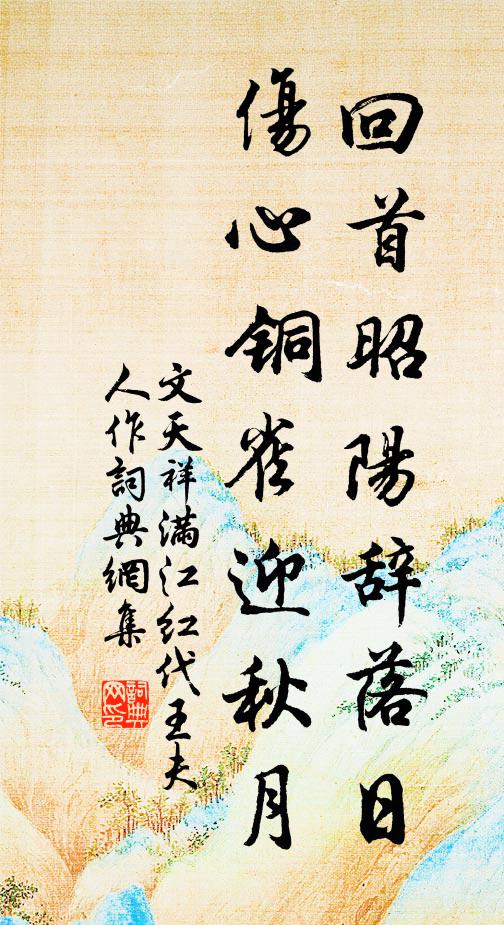 回首昭陽辞落日
傷心銅雀迎秋月
文天祥滿江红代王夫
人作詞典網集
詞典